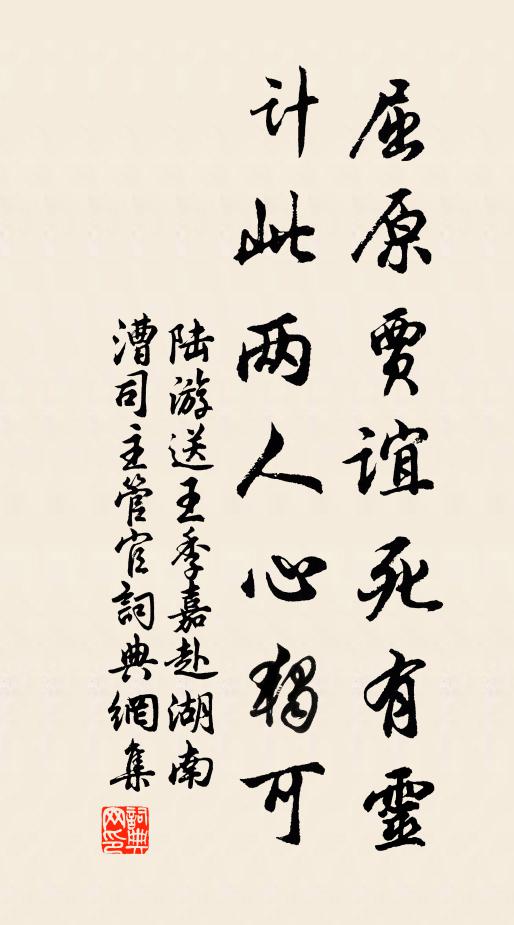 屈原賈誼死有靈
计此两人心独可
陆游送王季嘉赴湖南
漕司主管官詞典網集
詞典
网印